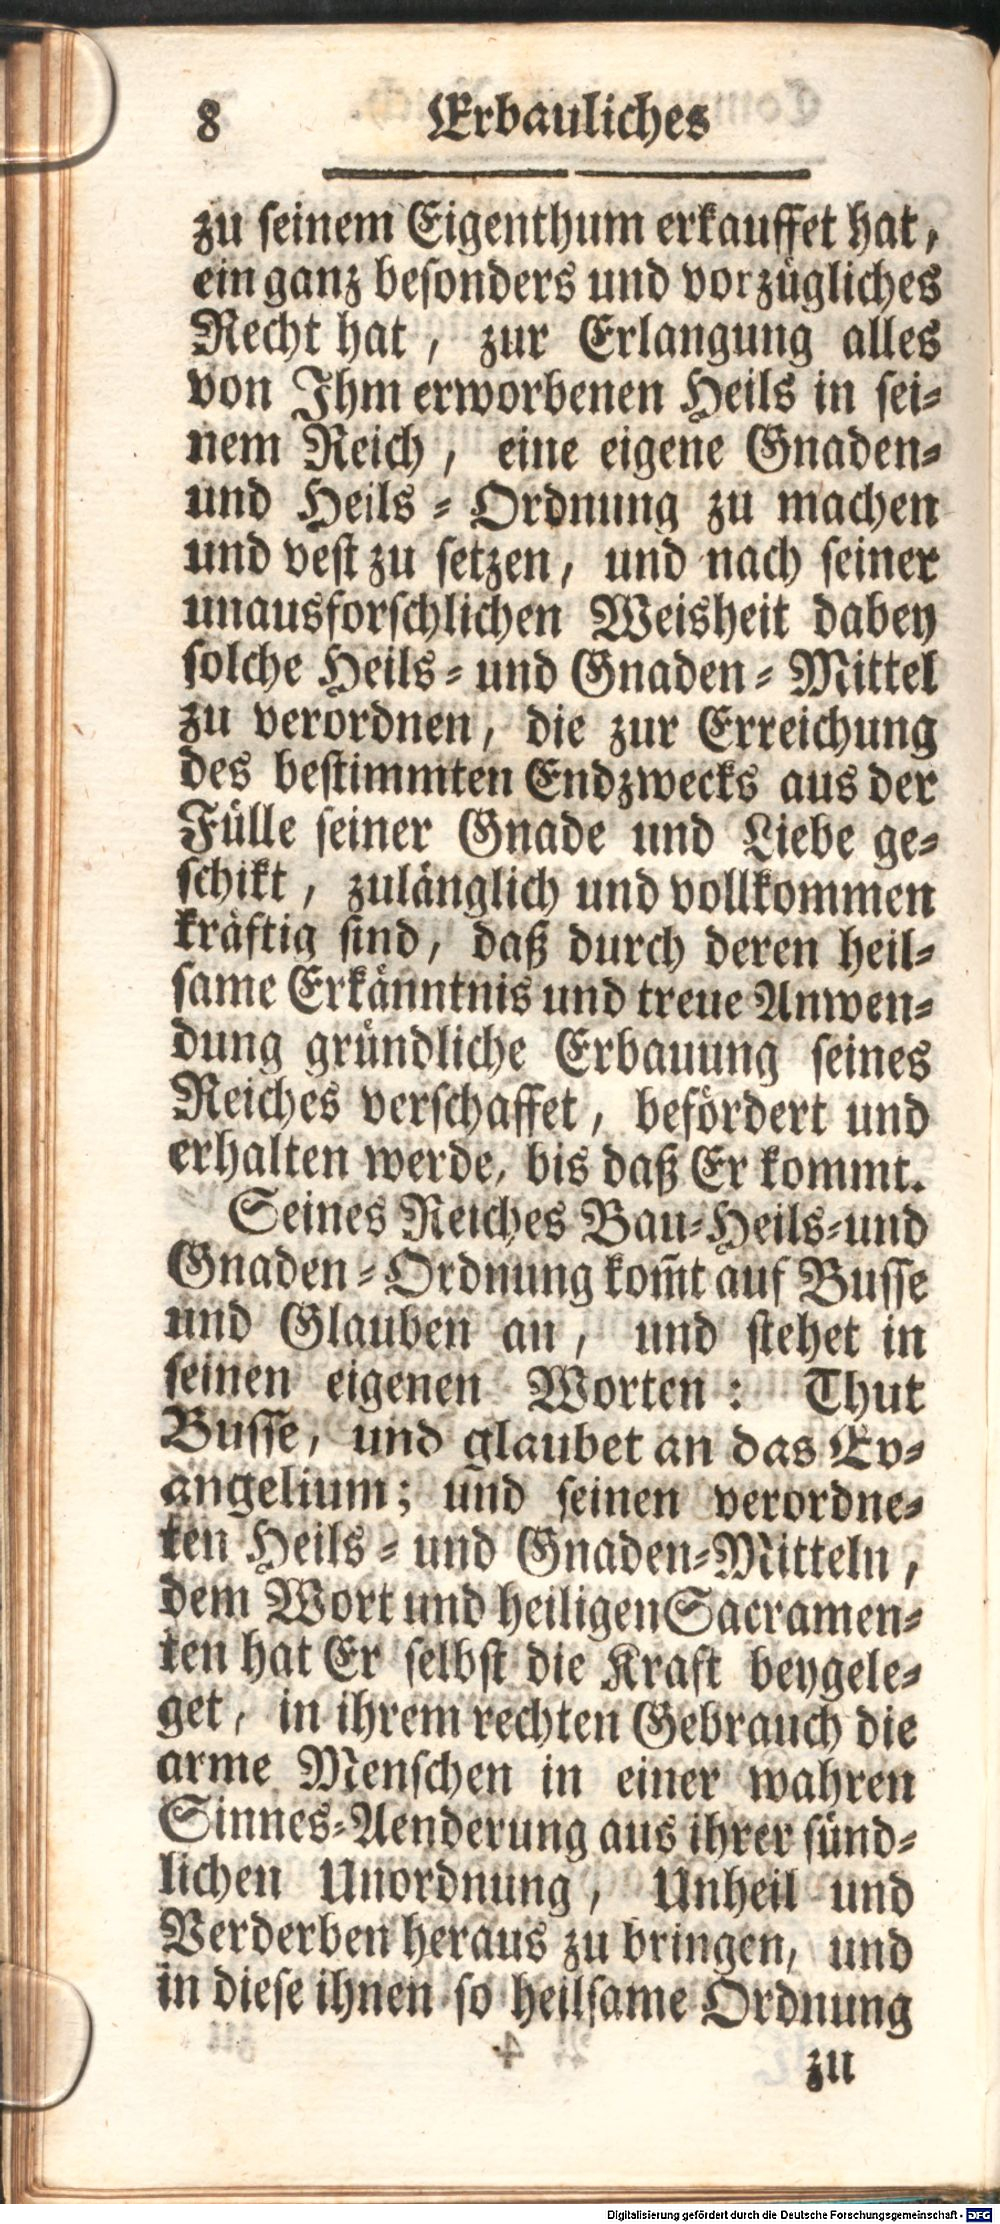 8 Erbauliches
zu seinem Eigenthum erkauffet hat,
ein ganz besonders und vorzügliches
Recht hat, zur Erlangung alles
von Ihm erworbenen Heils in sei-
nem Reich, eine eigene Gnaden-
und Heils-Ordnung zu machen
und vest zu setzen, und nach seiner
unausforschlichen Weisheit dabey
solche Heils- und Gnaden-Mittel
zu verordnen, die zur Erreichung
des bestimmten Endzwecks aus der
Fülle seiner Gnade und Liebe ge-
schikt, zulänglich und vollkommen
kräftig sind, daß durch deren heil-
same Erkänntnis und treue Anwen-
dung gründliche Erbauung seines
Reiches verschaffet, befördert und
erhalten werde, bis daß Er kommt.
Seines Reiches Bau-Heils-und
Gnaden-Ordnung kom̃t auf Busse
und Glauben an, und stehet in
seinen eigenen Worten: Thut
Busse, und glaubet an das Ev-
angelium; und seinen verordne-
ten Heils- und Gnaden-Mitteln,
dem Wort und heiligen Sacramen-
ten hat Er selbst die Kraft beygele-
get, in ihrem rechten Gebrauch die
arme Menschen in einer wahren
Sinnes-Aenderung aus ihrer sünd-
lichen Unordnung, Unheil und
Verderben heraus zu bringen, und
in diese ihnen so heilsame Ordnung
zu
Digitalisierung gefördert durch die Deutsche Forschungsgemeinschaft - DFG